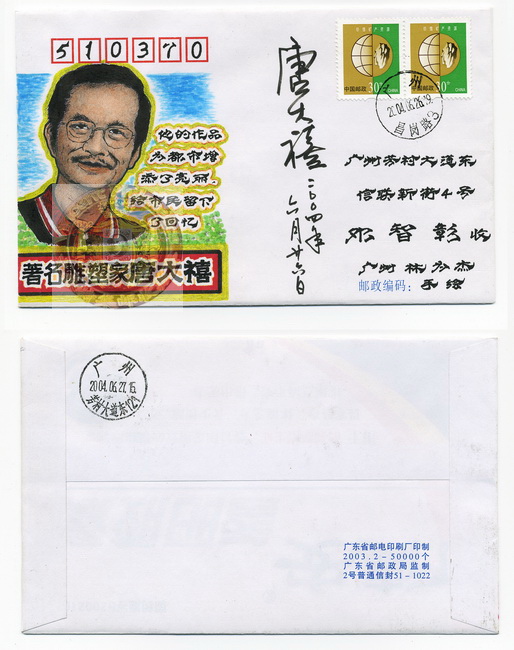 510370
中国邮政 30分 CHINA
中国邮政 30分 CHINA
广州
2004.06.26.19
昌岗路3
他的作品
为都市增
添了亮丽,
给市民留下
了回忆
著名雕塑家唐大禧
唐大禧
二〇〇四年
六月廿六日
广州芳村大道东
信联新街4号
邓智彰收
广州林为杰
手绘
邮政编码:
广州
2004.06.27.15
芳村大道东(12)
广东省邮电印刷厂印制
2003.2-50000个
广东省邮政局监制
2号普通信封51-1022